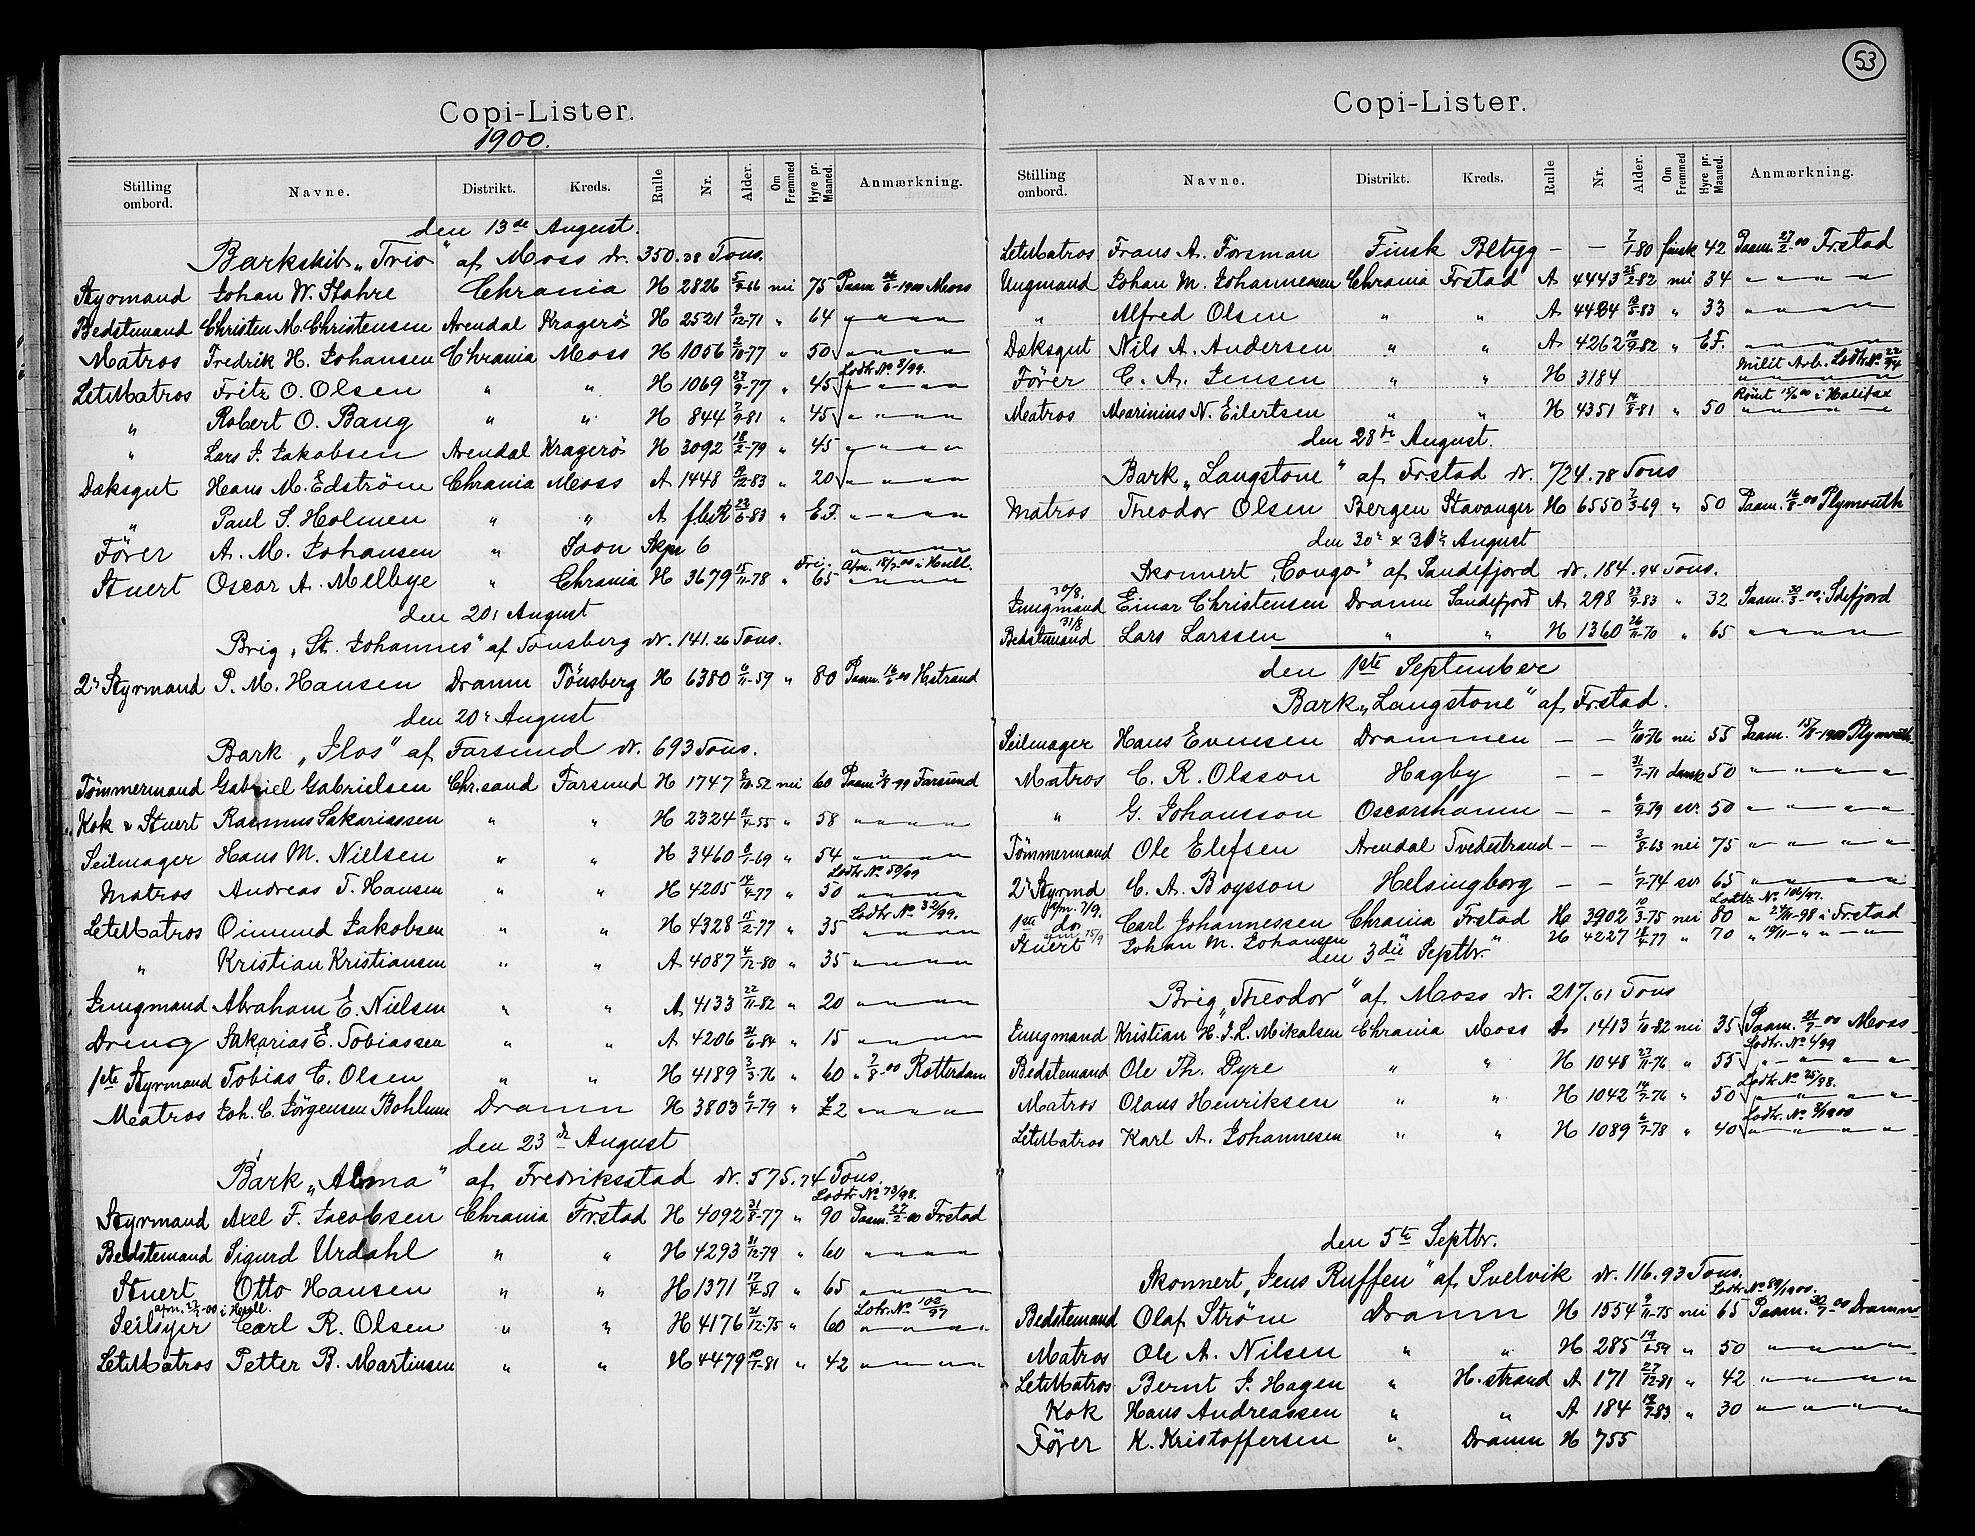 53
Copi-Lister.
1900.
Stilling ombord. Navne. Distrikt. Kreds. Rulle Nr. Alder. Om Fremmed Hyre pr. Maaned. Anmærkning.
den 13de August.
Barkskib „Trio" af Moss dr. 350.28 Tons.
Styrmand Johan W. Stahre Chrania H 2826 5/9-66 nei 75 Paam. 26/6-1900 Moss
Bedstemand Christen M. Christensen Arendal Kragerö H 2521 2/12-71 " 64 " " " "
Matros Fredrik H. Johansen Chrania Moss H 1056 2/10-77 " 50 " " " "
Lodtr. No 2/99.
LetMatros Fritz O. Olsen " " H 1069 27/9-77 " 45 " " " "
" Robert O. Bang " " H 844 7/9-81 " 45 " " " "
" Lars J. Jakobsen Arendal Kragerö H 3092 18/2-79 " 45 " " " "
Dæksgut Hans M. Edström Chrania Moss A 1448 9/12-83 " 20 " " " "
" Paul S. Holmen " " A 23/6-83 " E.F. " " " "
Förer A. M. Johansen " Soon Skpr 6 " " " "
Fri. Afm. 18/7.00 i Hull.
Stuert Oscar A. Melbye " Chrania H 3679 15/11-78 " 65 " " " "
den 20r August
Brig „St. Johannes" af Tonsberg dr. 141.26 Tons.
2r Styrmand P. M. Hansen Dramn Tönsberg H 6380 4/11-59 " 80 Paam. 16/6-00 H.strand
den 20r August
Bark „Flos" af Farsund dr. 693 Tons.
Tömmermand Gabriel Gabrielsen Chr.sand Farsund H 1747 8/10-52 nei 60 Paam. 3/8-99 Farsund
Kok & Stuert Rasmus Sakariassen " " H 2324 11/4-55 " 58 " " " "
Seilmager Hans M. Nielsen " " H 3460 6/1-69 " 54 " " " "
Lodtr. No. 50/99
Matros Andreas T. Hansen " " H 4205 14/4-77 " 50 " " " "
Lodtr No 32/99.
LetMatros Oimund Jakobsen " " H 4328 11/2-77 " 35 " " " "
" Kristian Kristiansen " " A 4087 4/12-80 " 35 " " " "
Jungmand Abraham E. Nielsen " " A 4133 22/11-82 " 20 " " " "
Dreng Sakarias E. Tobiassen " " A 4206 21/6-84 " 15 " " " "
1ste Styrmand Tobias C. Olsen " " H 4189 3/3-76 " 60 " 7/8-00 Rotterdam
Matros Joh. C. Jörgensen Bohlum Dramn H 3803 6/1-79 " £2 " " " "
den 23de August
Bark „Alma" af Fredriksstad dr. 575.74 Tons.
Lodtr No 73/98.
Styrmand Axel F. Jacobsen Chrania Fr.stad H 4092 31/8-77 " 90 Paam. 27/2-00 Fr.stad
Bedstemand Sigurd Urdahl " " H 4293 31/12-79 " 60 " " " "
Stuert Otto Hansen " " H 1371 17/4-51 " 65 " " " "
afm. 23/7-00 i Hull. Lodtr. No 102/97
Seilsyer Carl R. Olsen " " H 4176 21/12-75 " 60 " " " "
LetMatros Petter B. Martinsen " " H 4479 10/1-81 " 42 " " " "
Copi-Lister.
Stilling ombord. Navne. Distrikt. Kreds. Rulle Nr. Alder. Om Fremmed Hyre pr. Maaned. Anmærkning.
LetMatros Frans A. Forsman Finsk Bltygg — — 7/1-80 finsk 42 Paam. 27/2-00 Fr.stad
Ungmand Johan M. Johannesen Chrania Fr.stad A 4443 25/2-82 nei 34 " " " "
" Alfred Olsen " " A 4484 18/3-83 " 33 " " " "
Dæksgut Nils A. Andersen " " A 4262 19/9-82 " E.F. " " " "
Milit. Arb. Lodtr. No 22/94
Förer C. A. Jensen " " H 3184 " " " "
Römt 15/6 00 i Halifax
Matros Marinius N. Eilertsen " " H 4351 14/8-81 " 50 " " " "
den 28de August.
Bark „Langstone" af Fr.stad dr. 724.78 Tons
Matros Theodor Olsen Bergen Stavanger H 6550 7/3-69 " 50 Paam. 16/8-00 Plymouth
den 30te & 31te August
Skonnert „Congo" af Sandefjord dr. 184.94 Tons.
30/8.
Jungmand Einar Christensen Dramn Sandefjord A 298 23/9-83 " 32 Paam. 30/3-00 i Sdefjord
31/8
Bedstemand Lars Larssen " " H 1360 26/11-70 " 65 " " " "
den 1ste September
Bark „Langstone" af Fr.stad.
Seilmager Hans Evensen Drammen — — 11/10-76 nei 55 Paam. 15/8-1900 Plymouth
Matros C. R. Olsson Hagby — — 31/7-71 dansk 50 " " " "
" G. Johansson Oscarshamn — — 6/9-79 svr. 50 " " " "
Tömmermand Ole Elefsen Arendal Tvedestrand — — 3/8-63 nei 75 " " " "
2r Styrmd C. A. Boysson Helsingborg — — 1/7-74 svr 65 " " " "
afm. 7/9. Lodtr. No 106/97.
1ste do. Carl Johannessen Chrania Fr.stad H 3902 10/3-75 nei 80 " 24/11-98 i Fr.stad
afm. 15/9
Stuert Johan M. Johansen " " H 4227 18/4-77 " 70 " 19/11 " " "
den 3die Septbr.
Brig „Theodor" af Moss dr. 217.61 Tons
Jungmand Kristian H. J. L. Mikalsen Chrania Moss A 1413 1/10-82 nei 35 Paam. 21/7-00 Moss
Lodtr. No 4/99
Bedstemand Ole Th. Dyre " " H 1048 27/11-76 " 55 " " " "
Lodtr No 25/98.
Matros Olaus Henriksen " " H 1042 19/7-76 " 50 " " " "
Lodtr. No 2/1900
LetMatros Karl A. Johannesen " " H 1089 6/7-78 " 40 " " " "
den 5te Septbr.
Skonnert „Jens Ruffen" af Svelvik dr. 116.93 Tons.
Lodtr No 89/1900.
Bedstemand Olaf Ström Dramn H 1554 9/11-75 nei 65 Paam. 30/7-00 Dramn
Matros Ole A. Nilsen " " H 285 19/1-59 " 50 " " " "
LetMatros Bernt J. Hagen " H.strand A 171 27/12-81 " 42 " " " "
Kok Hans Andreassen " " A 184 19/7-83 " 30 " " " "
Förer K. Kristoffersen " Dramn H 755